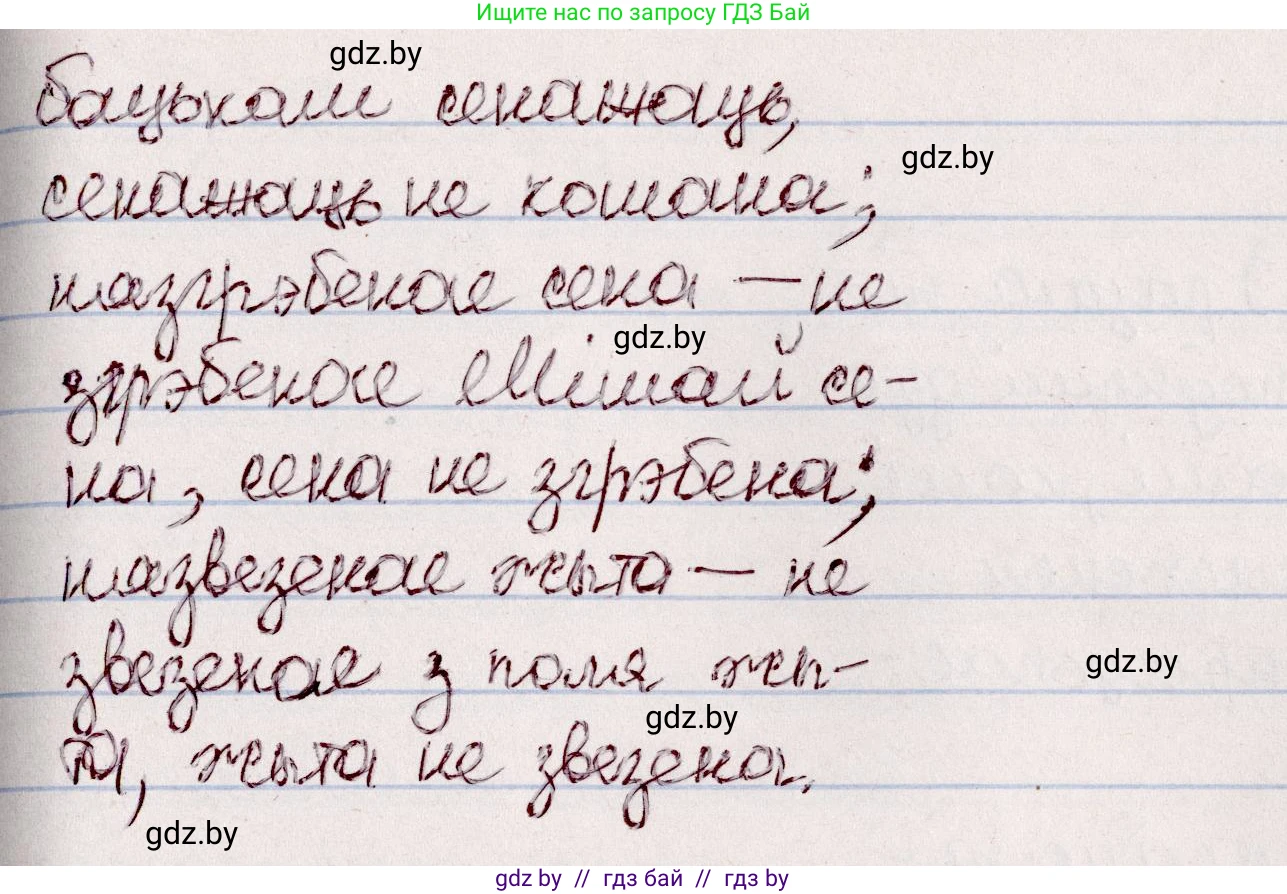 Ищите нас по запросу ГДЗ Бай
gdz.by
бацькам сенажаць,
gdz.by
сенажаць не кошана;
назгрэбенае сена — не
gdz.by
згрэбенае Мішай се-
на, сена не згрэбена;
назвезенае жыта — не
звезенае з поля жы-
gdz.by
gdz.by
та, жыта не звезена.
gdz.by
gdz by // гдз бай // гдз by